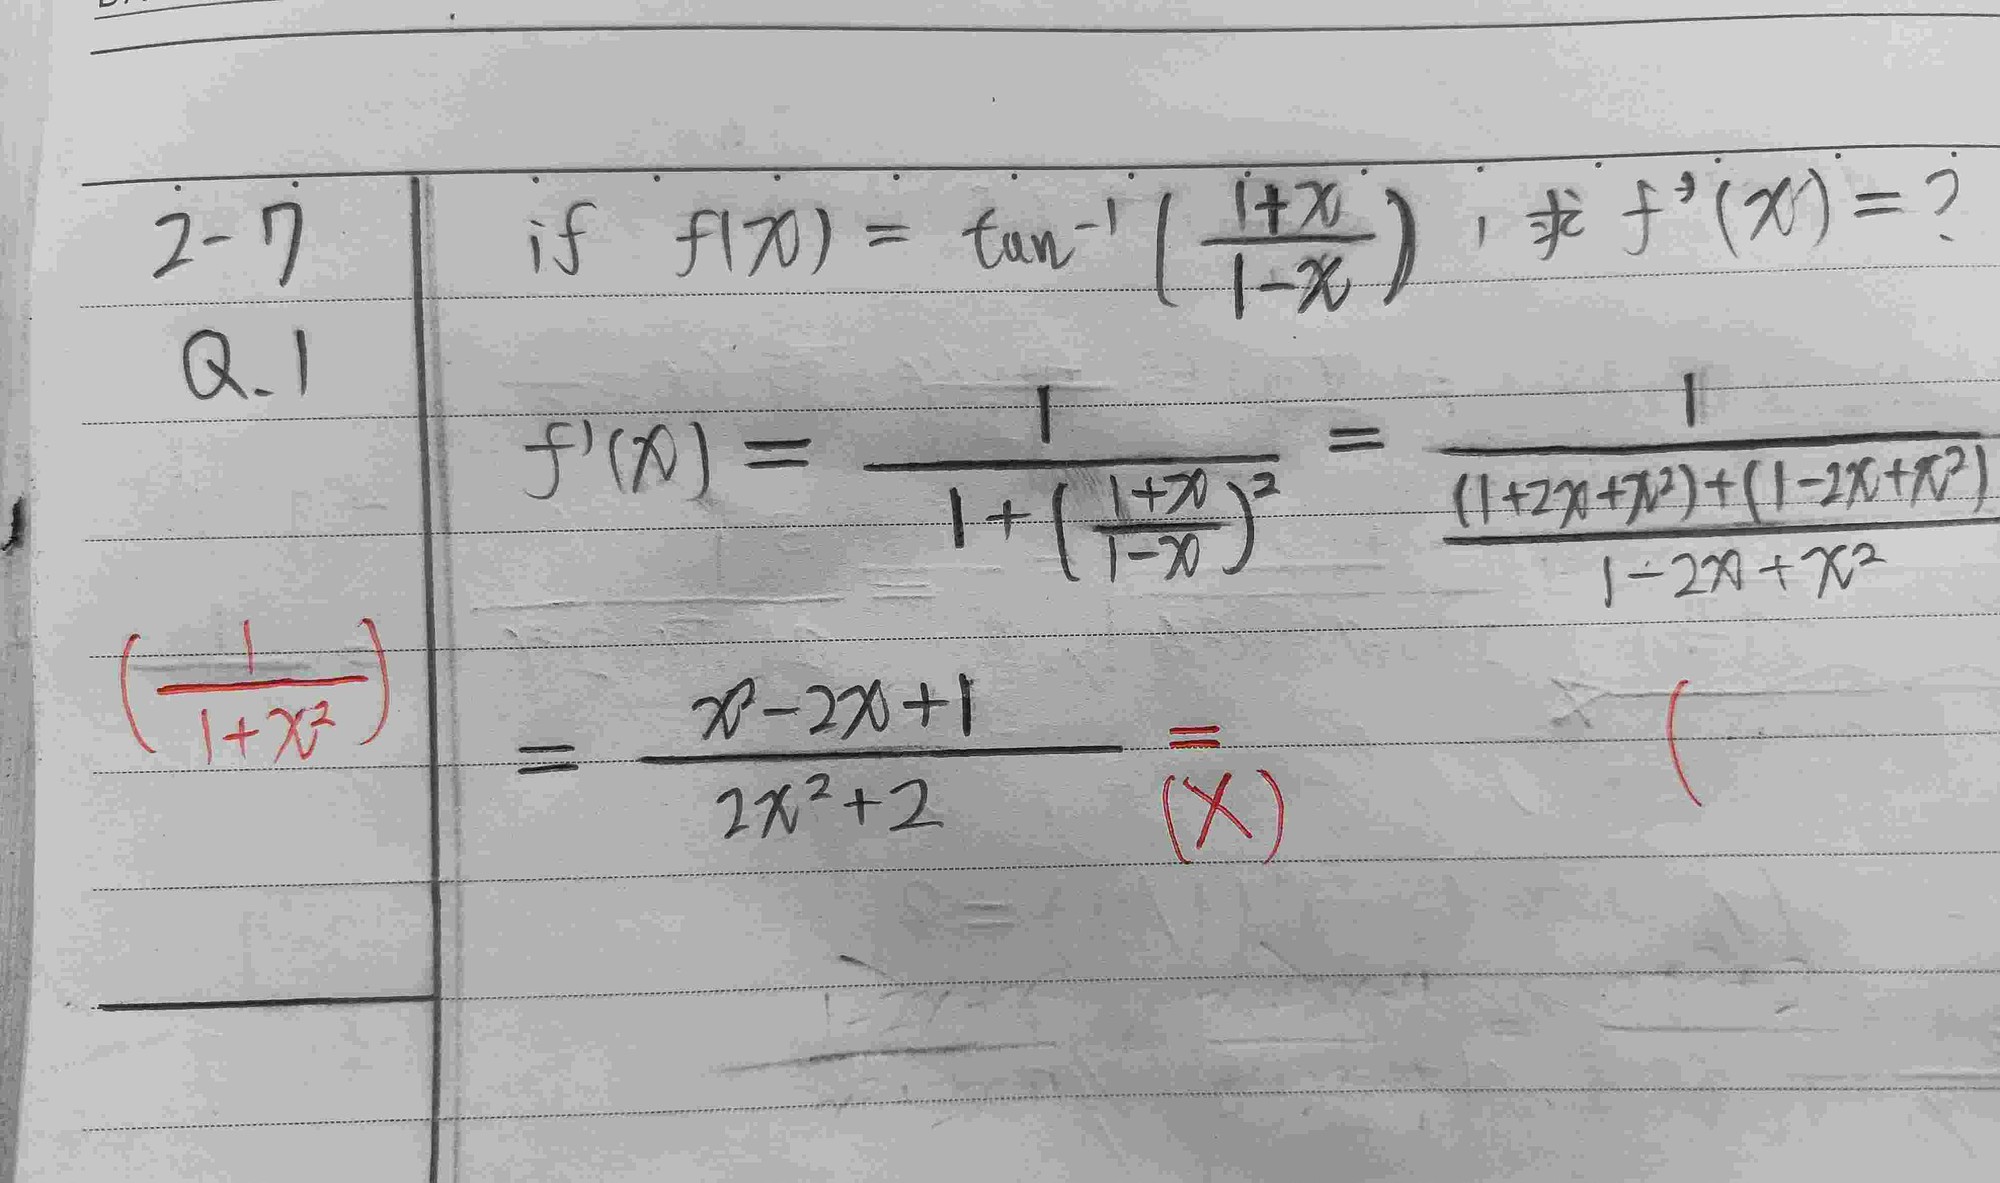 2-7
Q.1
if f(x) = tan⁻¹(\frac{1+x}{1-x}) , 求 f'(x) = ?
f'(x) = \frac{1}{1+(\frac{1+x}{1-x})^2} = \frac{1}{\frac{(1+2x+x^2)+(1-2x+x^2)}{1-2x+x^2}}
(\frac{1}{1+x^2})
= \frac{x^2-2x+1}{2x^2+2} = (
(X)